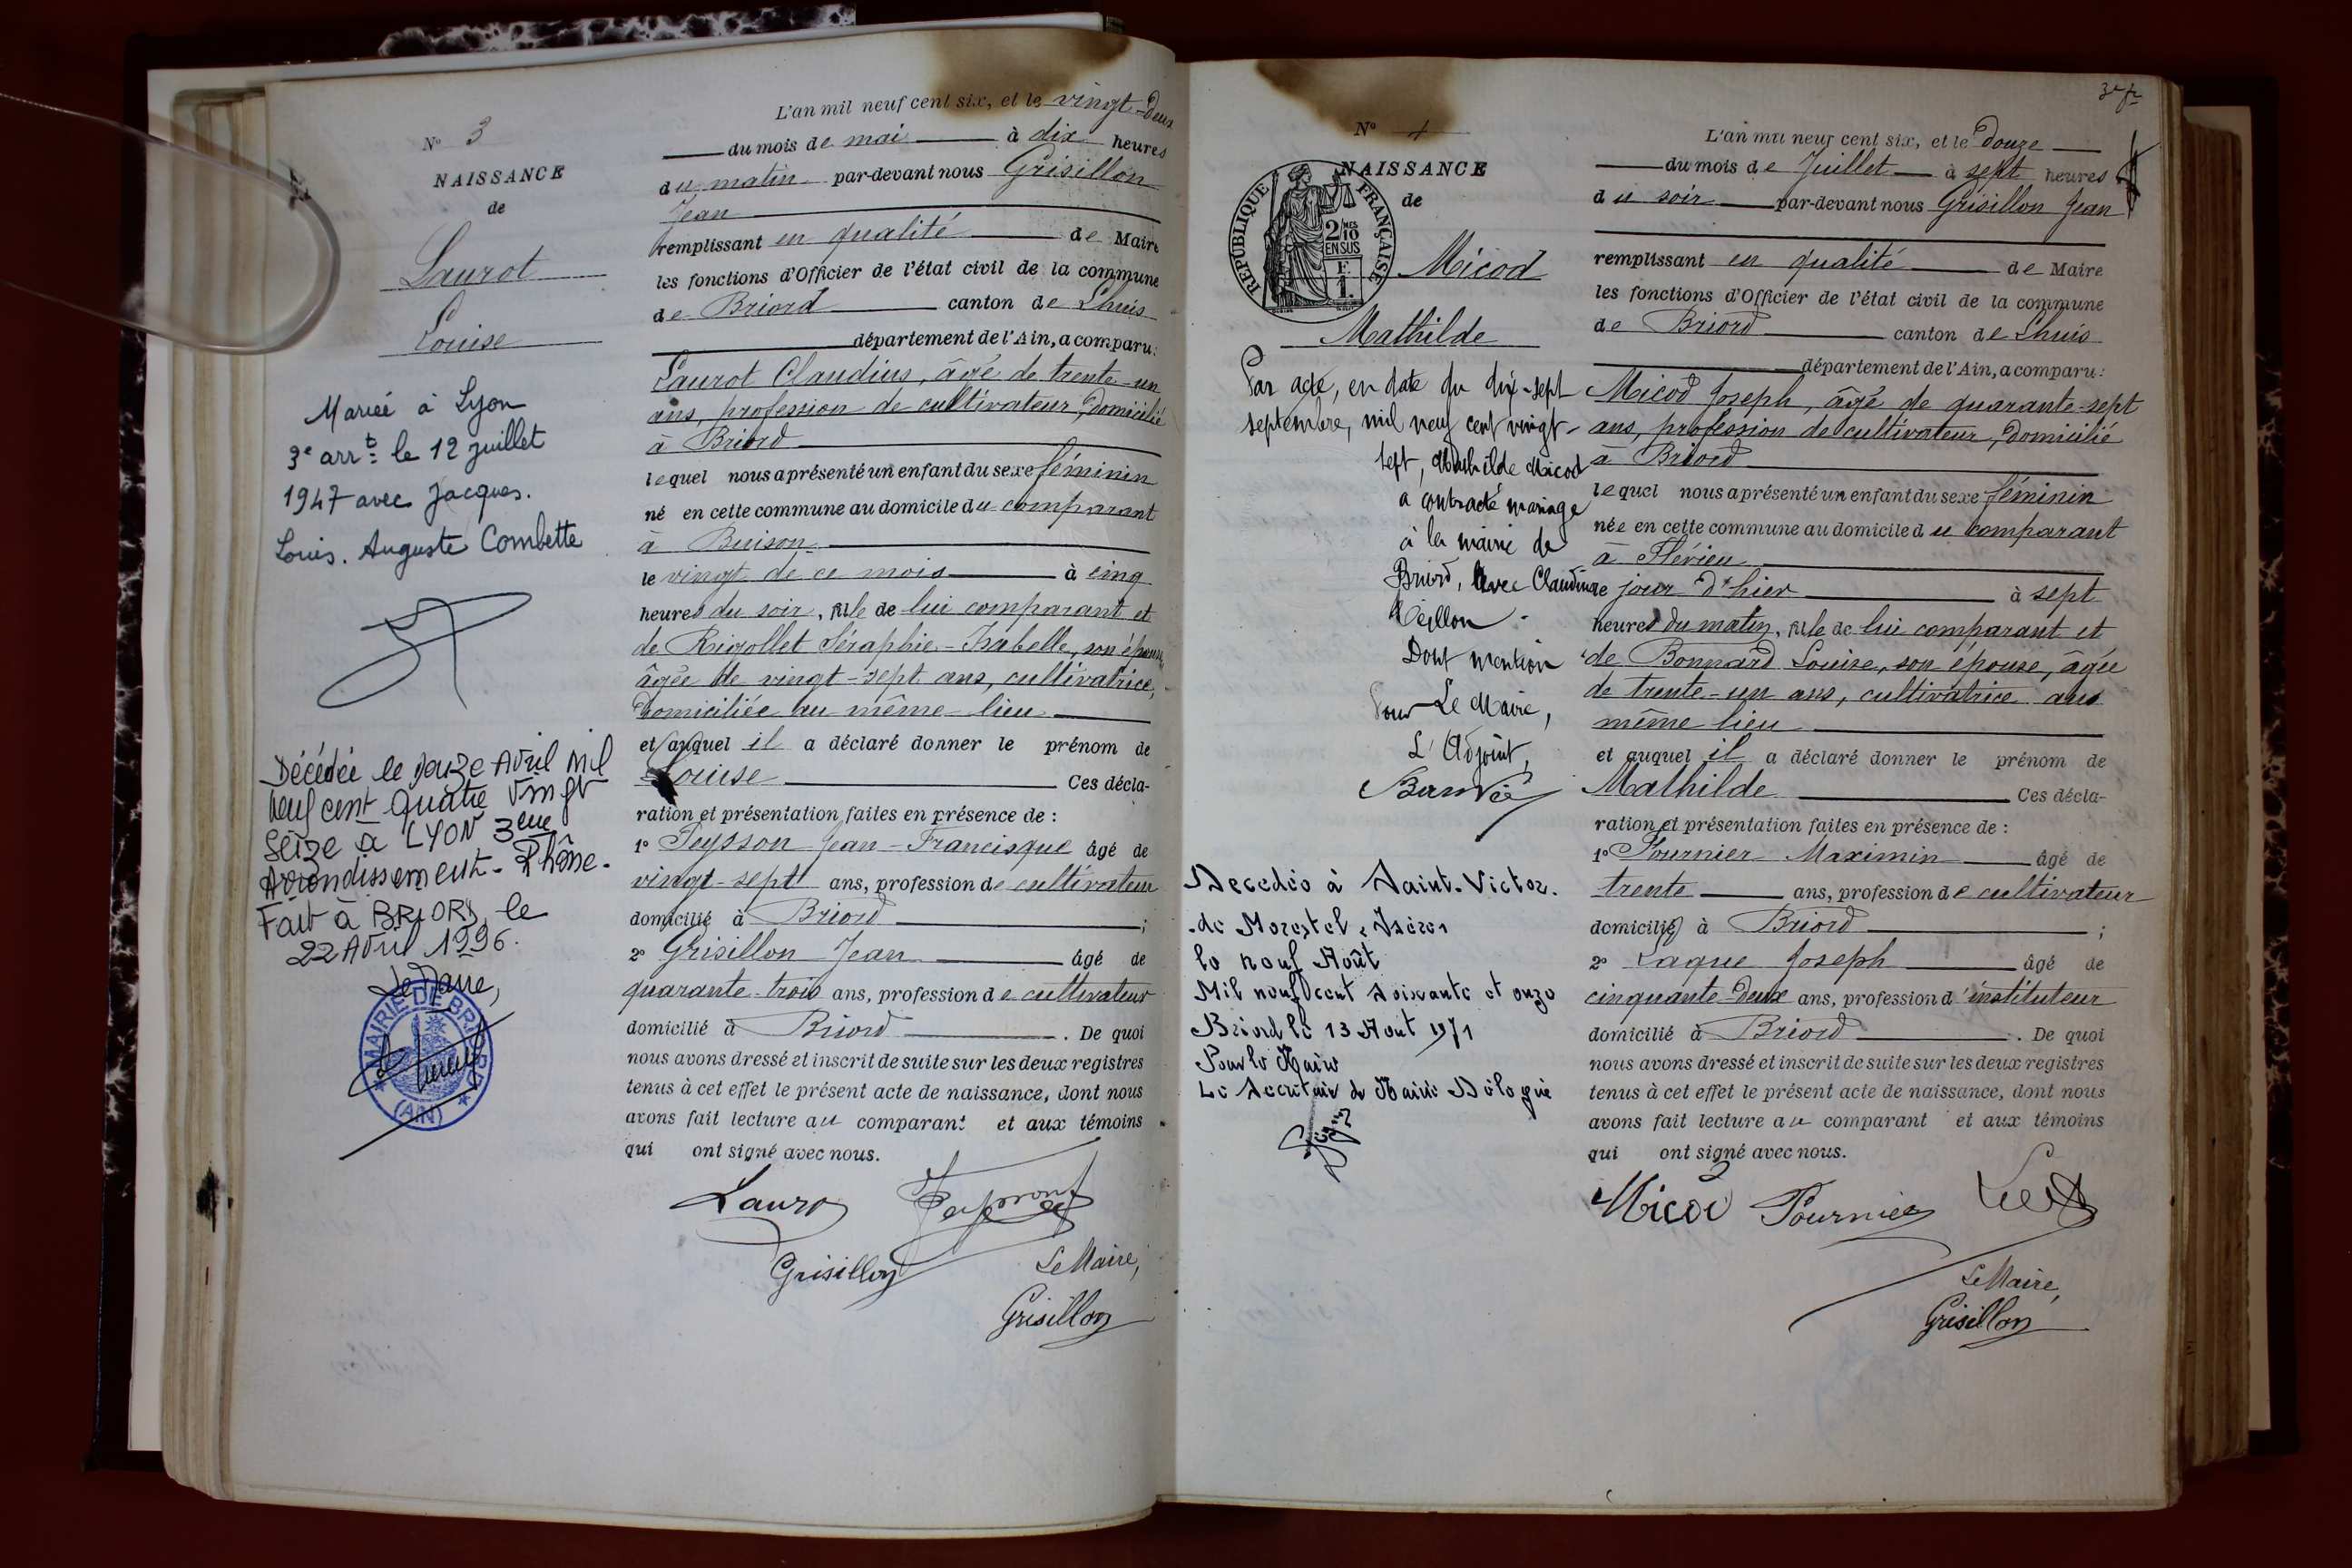 N° 3
NAISSANCE
de
Laurot
Louise
Mariée à Lyon
3e arrt le 12 juillet
1947 avec Jacques.
Louis. Auguste Combette
Décédée le douze Avril mil
neuf cent quatre vingt
seize à LYON 3eme
Arrondissement - Rhône.
Fait à BRIORD, le
22 Avril 1996.
Le Maire,
MAIRIE DE BRIORD
(AIN)
L'an mil neuf cent six, et le vingt-deux
du mois de mai à dix heures
du matin par-devant nous Grisillon
Jean
remplissant en qualité de Maire
les fonctions d'Officier de l'état civil de la commune
de Briord canton de Lhuis
département de l'Ain, a comparu:
Laurot Claudius, âgé de trente-un
ans, profession de cultivateur, domicilié
à Briord
lequel nous a présenté un enfant du sexe féminin
né en cette commune au domicile du comparant
à Buison
le vingt de ce mois à cinq
heures du soir, fille de lui comparant et
de Rigollet Séraphie-Isabelle, son épouse,
âgée de vingt-sept ans, cultivatrice,
domiciliée au même lieu
et auquel il a déclaré donner le prénom de
Louise Ces décla-
ration et présentation faites en présence de :
1° Peysson Jean-Francisque âgé de
vingt-sept ans, profession de cultivateur
domicilié à Briord ;
2° Grisillon Jean âgé de
quarante-trois ans, profession de cultivateur
domicilié à Briord . De quoi
nous avons dressé et inscrit de suite sur les deux registres
tenus à cet effet le présent acte de naissance, dont nous
avons fait lecture au comparant et aux témoins
qui ont signé avec nous.
Laurot
Grisillon Le Maire,
Grisillon
N° 4
NAISSANCE
de
RÉPUBLIQUE FRANÇAISE
2/10MES
EN SUS
F.
1.
Micod
Mathilde
Par acte, en date du dix-sept
septembre, mil neuf cent vingt-
sept, Mathilde Micod
a contracté mariage
à la mairie de
Briord, avec Claudine
Dont mention
Pour Le Maire,
L'Adjoint,
Décédée à Saint-Victor.
de Morestel, Isère,
le neuf Août
Mil neuf cent soixante et onze
Briord le 13 Août 1971
Pour le Maire
Le Secrétaire de Mairie Délégué
L'an mil neuf cent six, et le douze
du mois de Juillet à sept heures
du soir par-devant nous Grisillon Jean
remplissant en qualité de Maire
les fonctions d'Officier de l'état civil de la commune
de Briord canton de Lhuis
département de l'Ain, a comparu:
Micod Joseph, âgé de quarante-sept
ans, profession de cultivateur, domicilié
à Briord
lequel nous a présenté un enfant du sexe féminin
née en cette commune au domicile du comparant
à Flévieu
le jour d'hier à sept
heures du matin, fille de lui comparant et
de Bonnard Louise, son épouse, âgée
de trente-un ans, cultivatrice au
même lieu
et auquel il a déclaré donner le prénom de
Mathilde Ces décla-
ration et présentation faites en présence de :
1° Fournier Maximin âgé de
trente ans, profession de cultivateur
domicilié à Briord ;
2° Laque Joseph âgé de
cinquante-deux ans, profession d'instituteur
domicilié à Briord . De quoi
nous avons dressé et inscrit de suite sur les deux registres
tenus à cet effet le présent acte de naissance, dont nous
avons fait lecture au comparant et aux témoins
qui ont signé avec nous.
Micod Fournier
Le Maire,
Grisillon